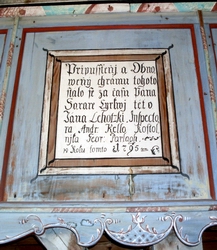 Pripusstěný a Obno
wený chrámu tohoto
stalo se za časů Pana
Farare Cyrkwj tét o
Jana Lehotzki Inspecto
ra Andr. Kello Kostol
njka Geor:
w Roku tomto 1795